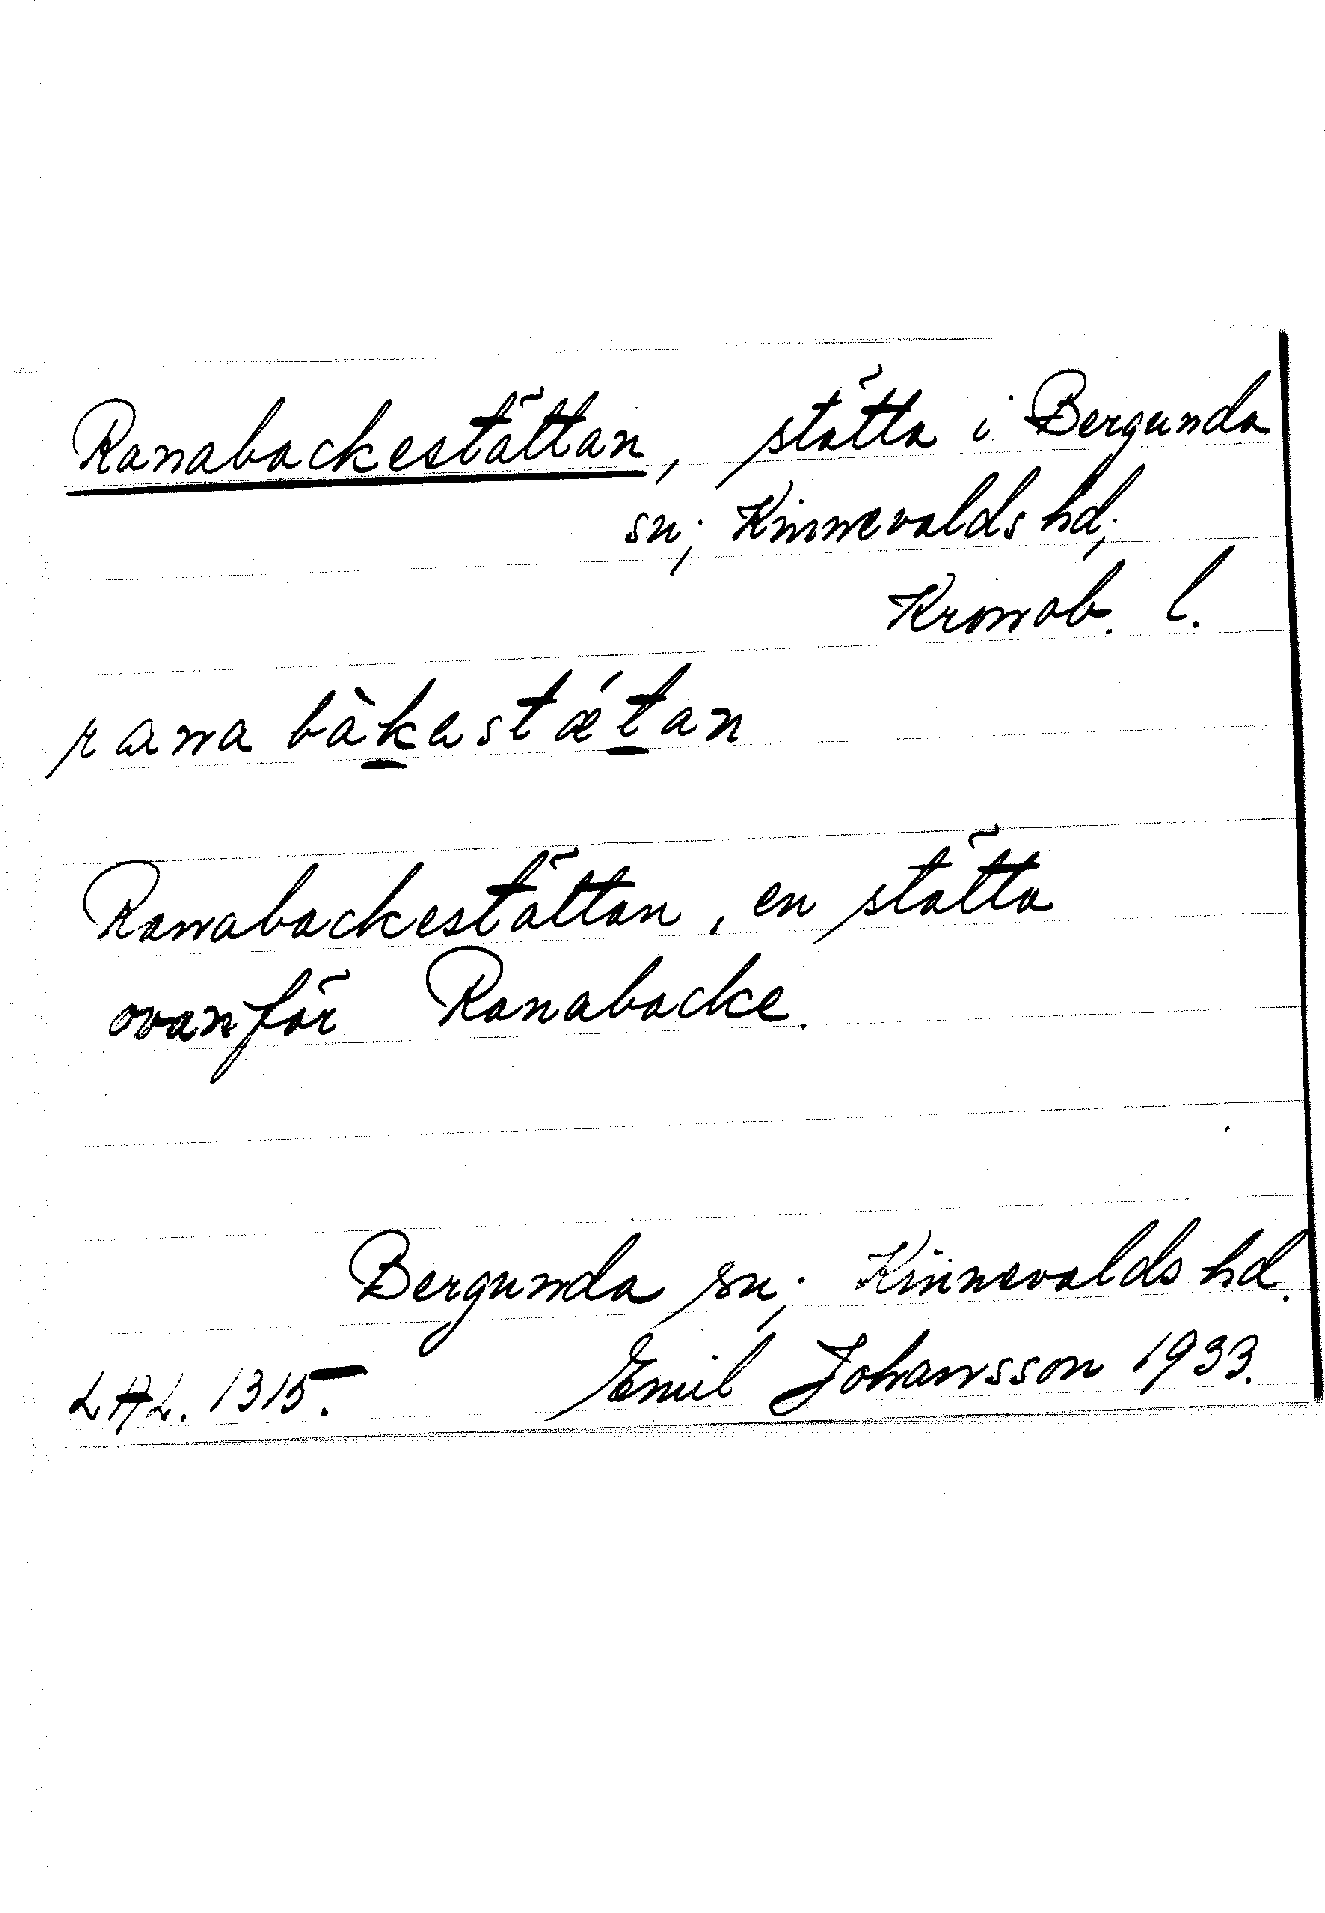 Ranabackestättan, stätta i Bergunda
sn; Kinnevalds hd;
Kronob. l.
rana bàkastǽtan
Ranabackestättan, en stätta
ovanför Ranabacke.
Bergunda sn; Kinnevalds hd.
LAL. 1315. Emil Johansson 1933.